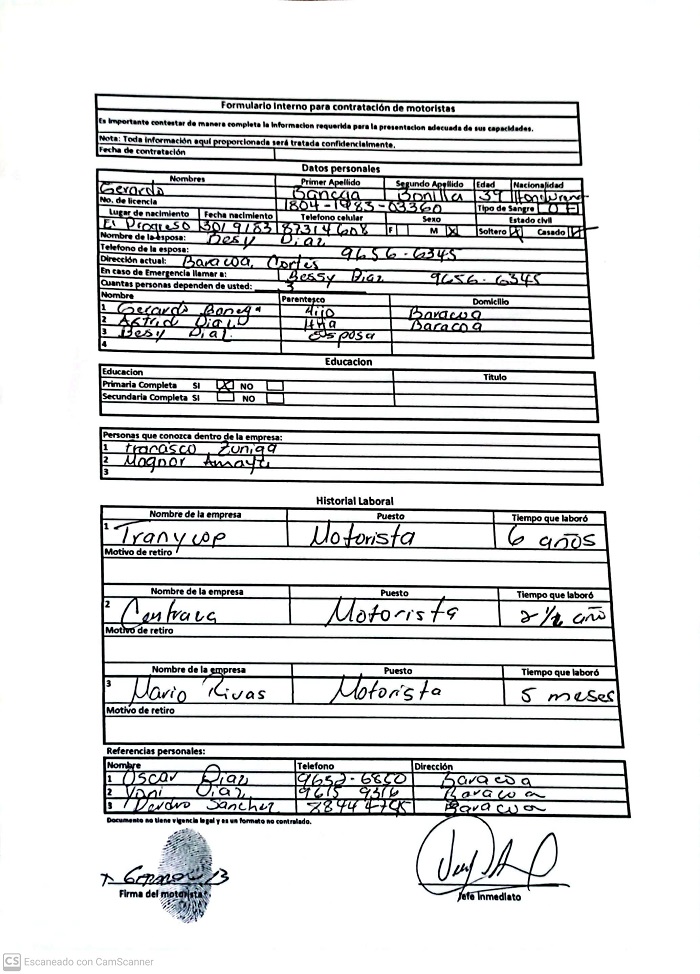 Formulario Interno para contratación de motoristas
Es importante contestar de manera completa la informacion requerida para la presentacion adecuada de sus capacidades.
Nota: Toda información aquí proporcionada será tratada confidencialmente.
Fecha de contratación
Datos personales
Nombres Primer Apellido Segundo Apellido Edad Nacionalidad
Gerardo Banega Bonilla 39
No. de licencia 1804-1983-03360 Tipo de Sangre
Lugar de nacimiento Fecha nacimiento Telefono celular Sexo Estado civil
El Progreso 87314608 F M X Soltero Casado
Nombre de la esposa: Besy Diaz
Telefono de la esposa: 9656-6345
Dirección actual: Baracoa, Cortés
En caso de Emergencia llamar a: Bessy Diaz 9656-6345
Cuantas personas dependen de usted: 3
Nombre Parentesco Domicilio
1 Gerardo Banega Hijo Baracoa
2 Astrid Diaz Hija Baracoa
3 Besy Diaz Esposa
4
Educacion
Educacion Titulo
Primaria Completa SI X NO
Secundaria Completa SI NO
Personas que conozca dentro de la empresa:
1 Zuniga
2 Amaya
3
Historial Laboral
Nombre de la empresa Puesto Tiempo que laboró
1 Motorista 6 años
Motivo de retiro
Nombre de la empresa Puesto Tiempo que laboró
2 Motorista 2 1/2 año
Motivo de retiro
Nombre de la empresa Puesto Tiempo que laboró
3 Mario Rivas Motorista 5 meses
Motivo de retiro
Referencias personales:
Nombre Telefono Dirección
1 Oscar Diaz 9652-6850 Baracoa
2 Yoni Diaz 9615 9316 Baracoa
3 Sanchez Baracoa
Documento no tiene vigencia legal y es un formato no controlado.
Firma del motorista Jefe Inmediato
CS Escaneado con CamScanner